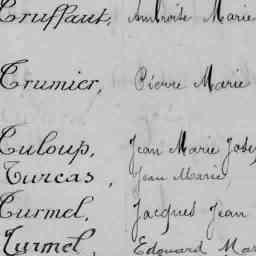 Truffaut, Ambroise Marie
Trumier, Pierre Marie
Tuloup, Jean Marie Jose
Turcas, Jean Marie
Turmel, Jacques Jean
Turmel, Edouard Mar